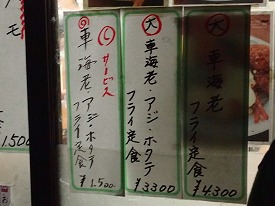 大 車海老
フライ定食
¥4,300
大 車海老・アジ・ホタテ
フライ定食
¥3300
サービス
車海老・アジ・ホタテ
フライ定食
¥1.500
モ
1500